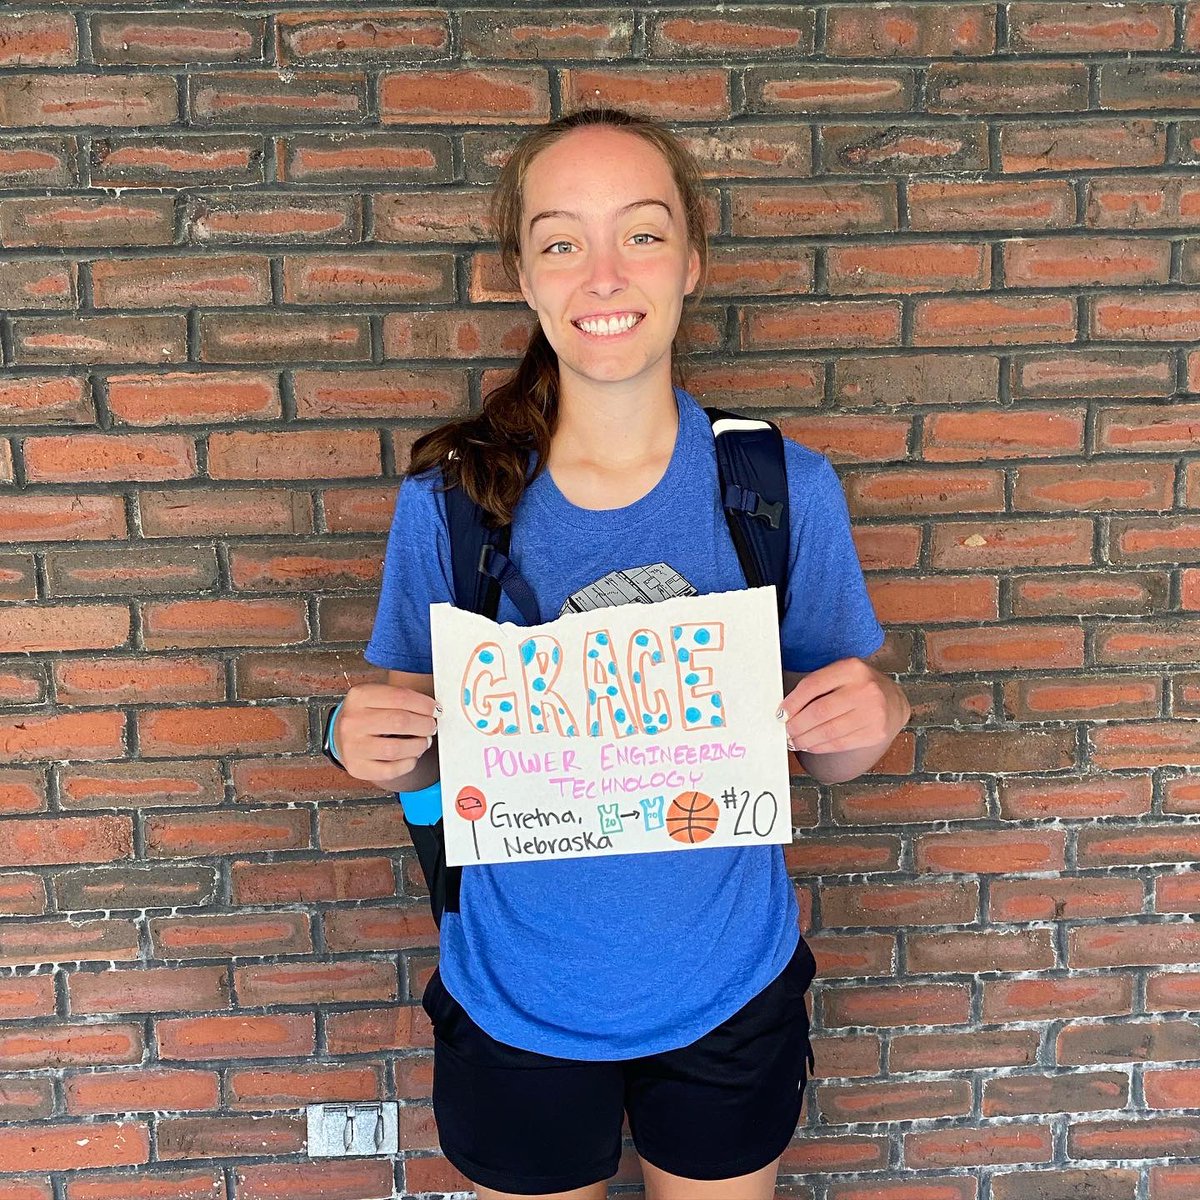 GRACE
POWER ENGINEERING
TECHNOLOGY
Gretna, 20 → 20 #20
Nebraska